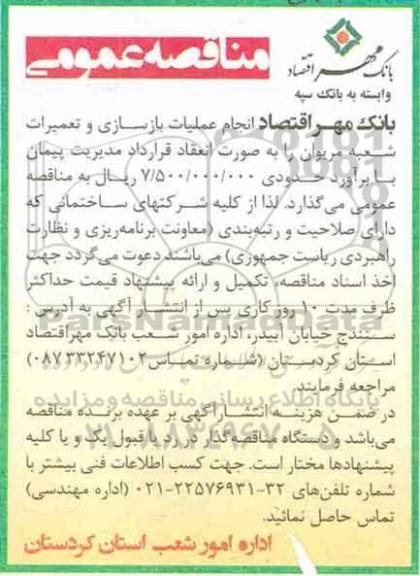 مناقصه عمومی
بانک مهر اقتصاد
وابسته به بانک سپه
بانک مهر اقتصاد انجام عملیات بازسازی و تعمیرات
شعبه مریوان را به صورت انعقاد قرارداد مدیریت پیمان
با برآورد حدودی ۷/۵۰۰/۰۰۰/۰۰۰ ریال به مناقصه
عمومی می‌گذارد. لذا از کلیه شرکتهای ساختمانی که
دارای صلاحیت و رتبه‌بندی (معاونت برنامه‌ریزی و نظارت
راهبردی ریاست جمهوری) می‌باشند دعوت می‌گردد جهت
اخذ اسناد مناقصه، تکمیل و ارائه پیشنهاد قیمت حداکثر
ظرف مدت ۱۰ روز کاری پس از انتشار آگهی به آدرس :
سنندج خیابان آبیدر، اداره امور شعب بانک مهر اقتصاد
استان کردستان (شماره تماس ۰۸۷۳۳۲۴۷۱۰۲)
مراجعه فرمایند.
در ضمن هزینه انتشار آگهی بر عهده برنده مناقصه
می‌باشد و دستگاه مناقصه گذار در رد یا قبول یک و یا کلیه
پیشنهادها مختار است. جهت کسب اطلاعات فنی بیشتر با
شماره تلفن‌های ۳۲-۲۲۵۷۶۹۳۱-۰۲۱ (اداره مهندسی)
تماس حاصل نمائید.
اداره امور شعب استان کردستان
ParsNamadData
پایگاه اطلاع رسانی مناقصه و مزایده
۰۲۱-۸۸۳۴۹۶۷۰-۵